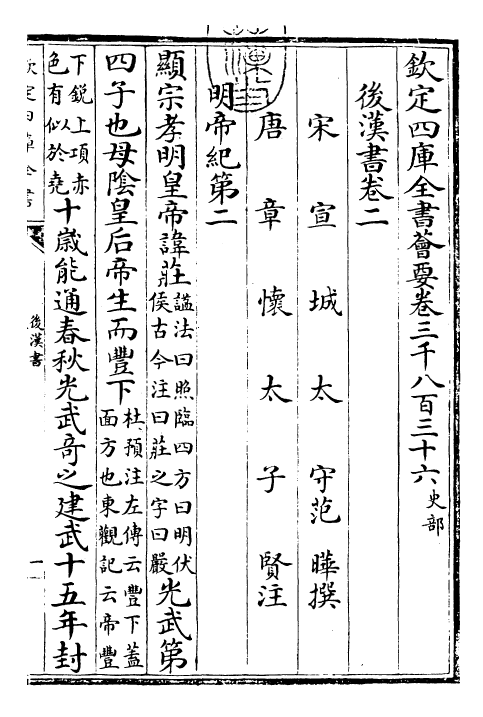 欽定四庫全書薈要卷三千八百三十六史部
後漢書卷二
宋宣城太守范曄撰
唐章懷太子賢注
明帝紀第二
顯宗孝明皇帝諱莊諡法曰照臨四方曰明伏侯古今注曰莊之字曰嚴光武第
四子也母陰皇后帝生而豐下杜預注左傳云豐下蓋面方也東觀記云帝豐
下銳上項赤色有似於堯十歲能通春秋光武奇之建武十五年封
欽定四庫全書
後漢書
一